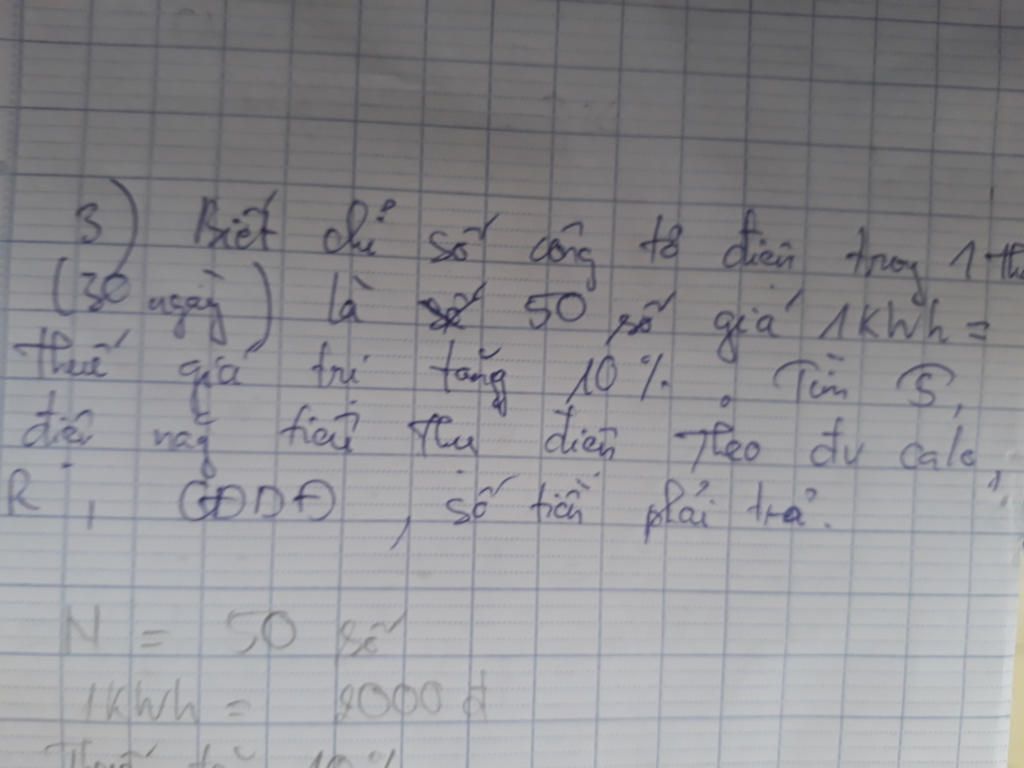 3) Biết chỉ số công tơ điện trong 1
(30 ngày) là 50 số giá 1KWh =
thuế giá trị tăng 10%. Tìm S,
điện năng tiêu thụ điện theo đv calo,
R, CĐDĐ, số tiền phải trả.
N = 50 số
1KWh = 000 đ
10%